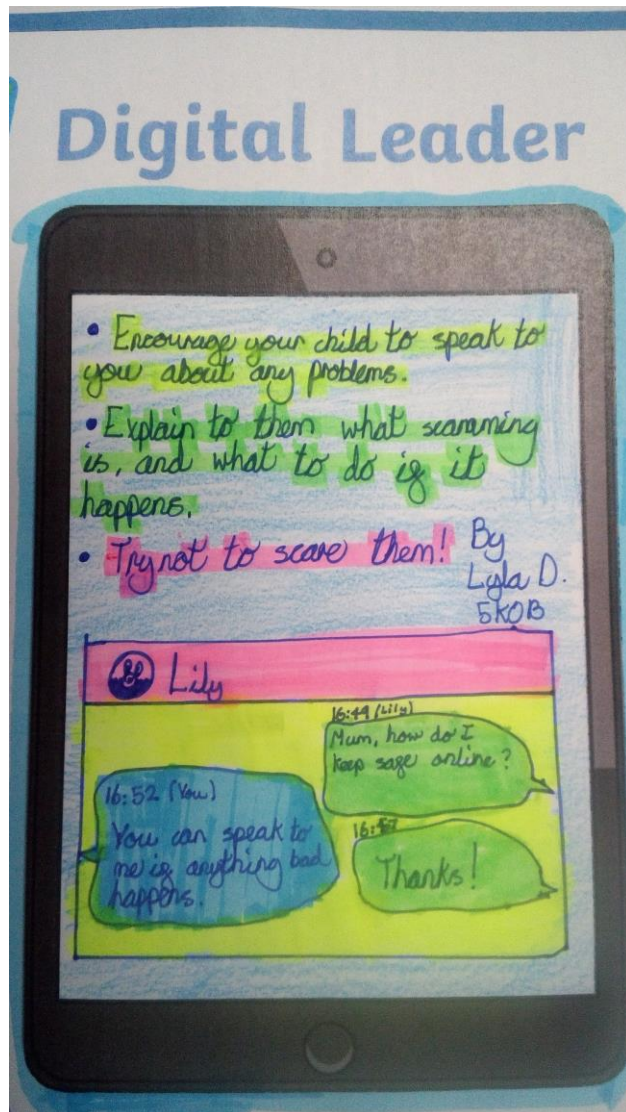 Digital Leader
• Encourage your child to speak to
you about any problems.
• Explain to them what scamming
is, and what to do if it
happens.
• Try not to scare them!
By
Lyla D.
5KOB
Lily
16:49 (Lily)
Mum, how do I
keep safe online?
16:52 (You)
You can speak to
me if anything bad
happens.
16:57
Thanks!